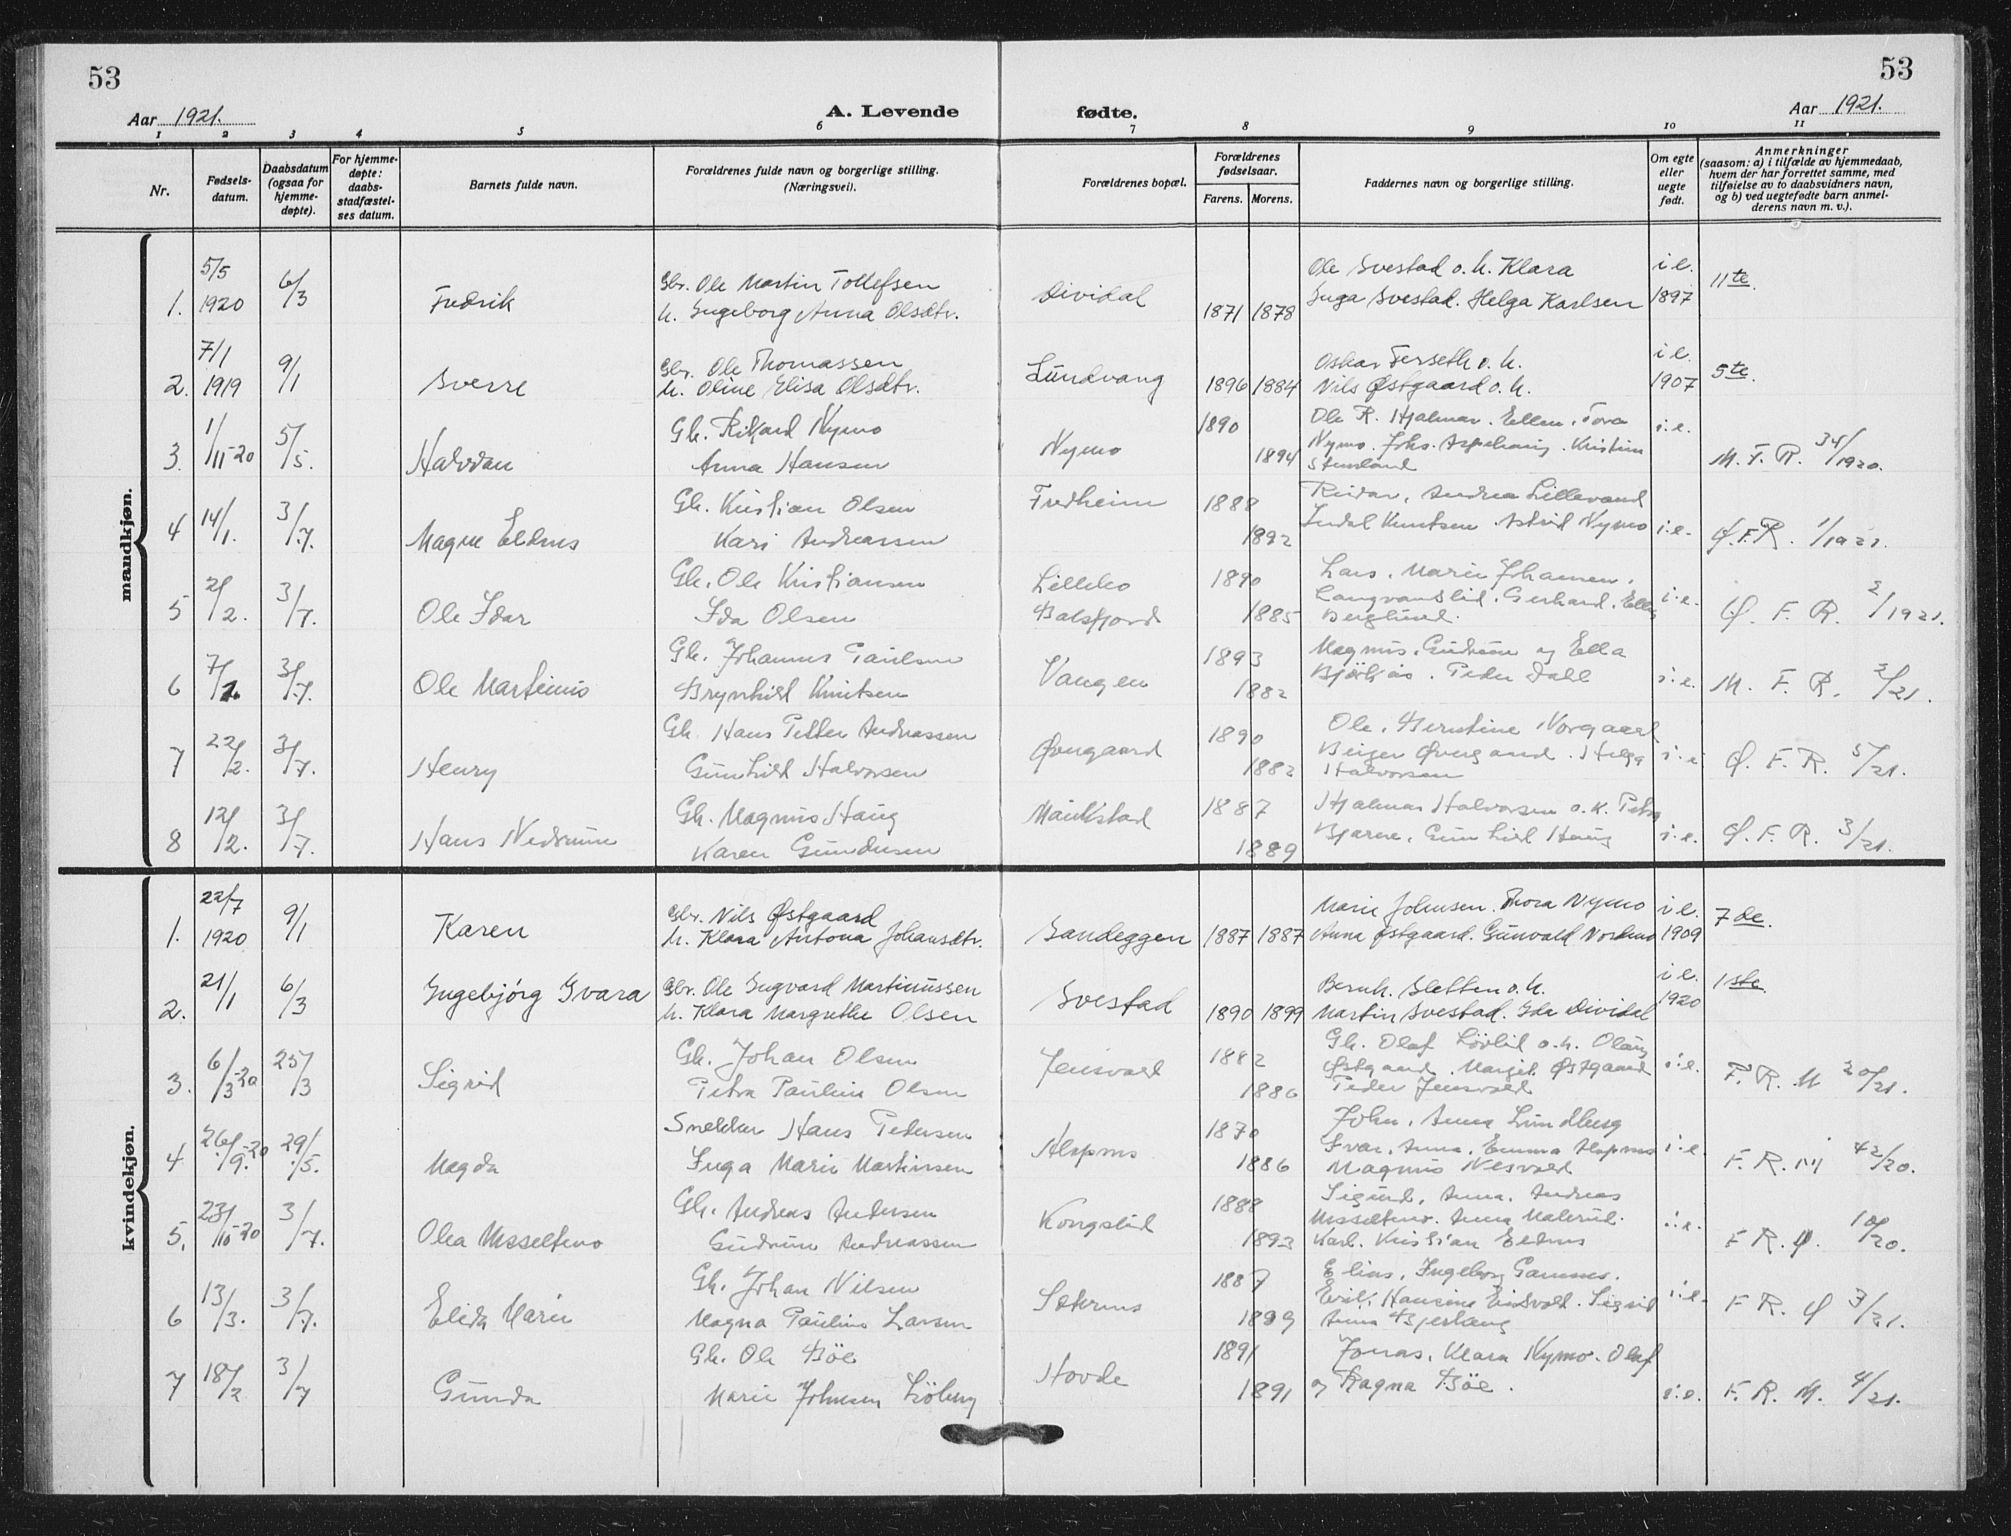 53
53
Aar 1921.
A. Levende
fødte.
Aar 1921.
1 2 3 4 5 6 7 8 9 10 11
Nr.
Fødsels-
datum.
Daabsdatum
(ogsaa for
hjemme-
døpte).
For hjemme-
døpte:
daabs-
stadfæstel-
ses datum.
Barnets fulde navn.
Forældrenes fulde navn og borgerlige stilling.
(Næringsvei).
Forældrenes bopæl.
Forældrenes
fødselsaar.
Farens. Morens.
Faddernes navn og borgerlige stilling.
Om egte
eller
uegte
født.
Anmerkninger
(saasom: a) i tilfælde av hjemmedaab,
hvem der har forrettet samme, med
tilføielse av to daabsvidners navn,
og b) ved uegtefødte barn anmel-
derens navn m. v.).
mandkjøn.
5/5 Gbr. Ole Martin Tollefsen Ole Svestad o. h. Klara i e.
1. 1920 6/3 Fredrik h. Ingeborg Anna Olsdtr. Dividal 1871 1878 Inga Svestad. Helga Karlsen 1897 11te.
7/1 Gbr. Ole Thomassen Oskar Ferseth o. h. i e.
2. 1919 9/1 Sverre h. Oline Elisa Olsdtr. Lundvang 1896 1884 Nils Østgaard o. h. 1907 5te.
1/11-20 5/5. Gh. Rikard Nymo 1890 Ole R. Hjalmar. Ellen. Tora i. e.
3. Halvdan Anna Hansen Nymo 1894 Nymo. Johs. Kristine M. F. R. 34/1920.
Gh. Kristian Olsen Fredheim 1888 Reidar, Andrea Lillevand
4 14/1. 3/7. Magne Eldnes Kari Andreassen 1892 Indal Knutsen Astrid Nymo i. e. Ø.F.R. 1/1921.
Gh. Ole Kristiansen Lillebo 1890 Lars. Marie Johansen.
5 2/2. 3/7. Ole Idar Ida Olsen Balsfjord 1885 Langvandslid. Gerhard. Berglund. i. e. Ø. F. R. 2/1921.
Gh. Johannes Paulsen 1893 Magnus. Gudrun og Ella
6 7/2 3/7. Ole Martinus Brynhild Knutsen Vangen 1882 Bjørkaas. Peder Dall i. e. M. F. R. 3/21.
Gh. Hans Petter Andreassen 1890 Ole. Berntine Norgaard
7 22/2. 3/7. Henry Gunhild Halvorsen Øvergaard 1882 Birger Øvergaard. Helga Halvorsen i. e Ø. F. R. 5/21.
Gh. Magnus Haug 1887 Hjalmar Halvorsen o. k. Petra
8 12/2. 3/7. Hans Nedrum Karen Gundersen Maukstad 1889 Bjarne. Gunhild Haug i. e. Ø. F. R. 3/21.
kvindekjøn.
22/7 Gbr. Nils Østgaard Marie Johnsen. Thora Nymo i e.
1. 1920 9/1 Karen h. Klara Antona Johansdtr. Sandeggen 1887 1887 Anna Østgaard. Gunvald Nordmo 1909 7de.
21/1 Gbr. Ole Ingvard Martinussen Bernh. Sletten o. h. i e.
2. 6/3 Ingebjørg Svara h. Klara Margrethe Olsen Svestad 1890 1899 Martin Svestad. Ida Dividal 1920 1ste.
Gh. Johan Olsen 1882 Gh. Olaf Løvlid o. h. Olaug
3. 6/3-20 25/3 Sigrid Petra Pauline Olsen Jensvold 1886 Østgaard. Margit Østgaard Peder Jensvold i. e. F. R. M 20/21.
Snekker Hans Petersen 1870 John, Anna Lundberg
4 26/9.-20 29/5. Magda Inga Marie Martinsen Alapmo 1886 Ivar, Anna, Emma Alapmo Magnus Nesvold i. e. F. R. M 42/20.
Gh. Andreas Andersen 1888 Sigurd, Anna. Andreas
5. 23/10-20 3/7. Olea Maaseltmo Gudrun Andreassen Kongslid 1893 Anna Karl. Kristian Eldnes i. e. F. R. Ø. 10/20.
Gh. Johan Nilsen 1887 Elias, Ingeborg
6 13/3. 3/7. Elida Marie Magna Pauline Larsen 1899 Hansine Sigrid Anna i. e. F R. Ø 3/21.
Gh. Ole Böe 1891 Jonas. Klara Nymo. Olaf
7 18/2 3/7 Gunda Marie Johnsen Hovde 1891 og Ragna Bøe. i. e. F. R. M. 4/21.